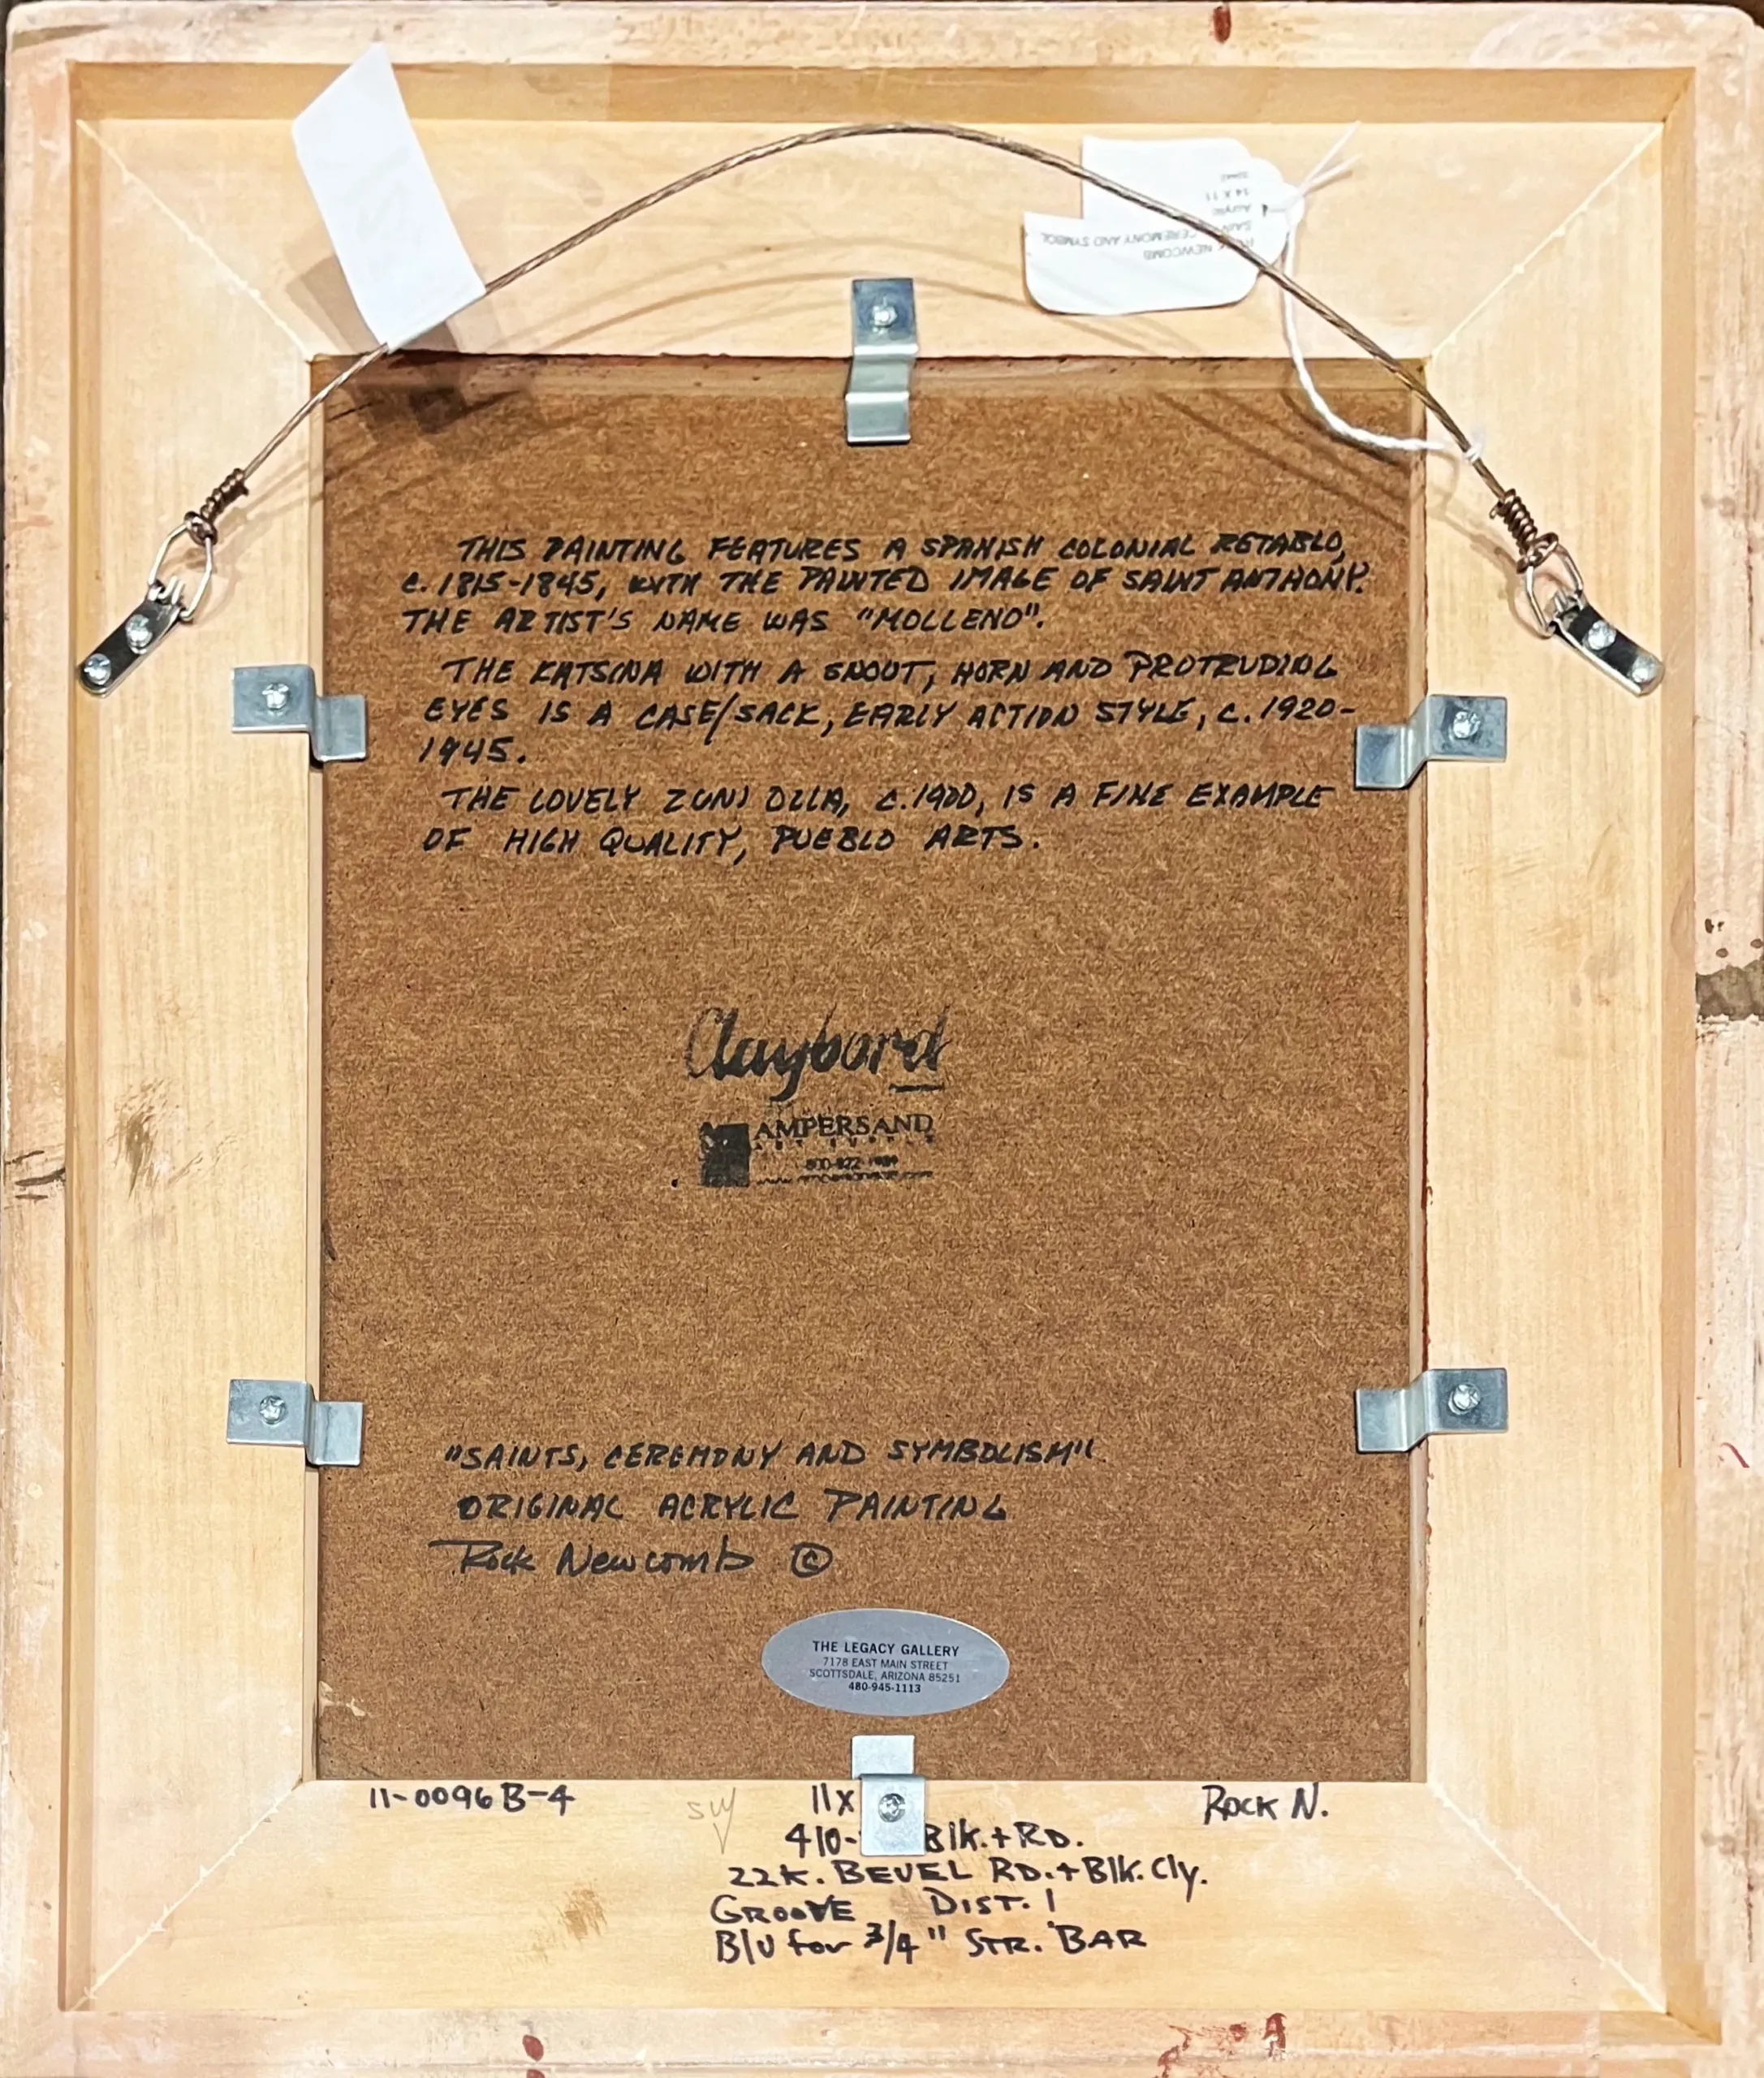 ROCK NEWCOMB
SAIN CEREMONY AND SYMBOL
Acrylic
14 X 11
THIS PAINTING FEATURES A SPANISH COLONIAL RETABLO,
C. 1815-1845, WITH THE PAINTED IMAGE OF SAINT ANTHONY.
THE ARTIST'S NAME WAS "MOLLENO".
THE KATSINA WITH A SNOUT, HORN AND PROTRUDING
EYES IS A CASE/SACK, EARLY ACTION STYLE, C. 1920-
1945.
THE LOVELY ZUNI OLLA, C. 1900, IS A FINE EXAMPLE
OF HIGH QUALITY, PUEBLO ARTS.
Claybord
AMPERSAND
ART SUPPLY
"SAINTS, CEREMONY AND SYMBOLISM"
ORIGINAL ACRYLIC PAINTING
Rock Newcomb ©
THE LEGACY GALLERY
7178 EAST MAIN STREET
SCOTTSDALE, ARIZONA 85251
480-945-1113
11-0096B-4 SW 11x ROCK N.
410- Blk.+RD.
22K. BEVEL RD.+Blk. Cly.
GROOVE DIST. 1
B/U for 3/4" STR. BAR